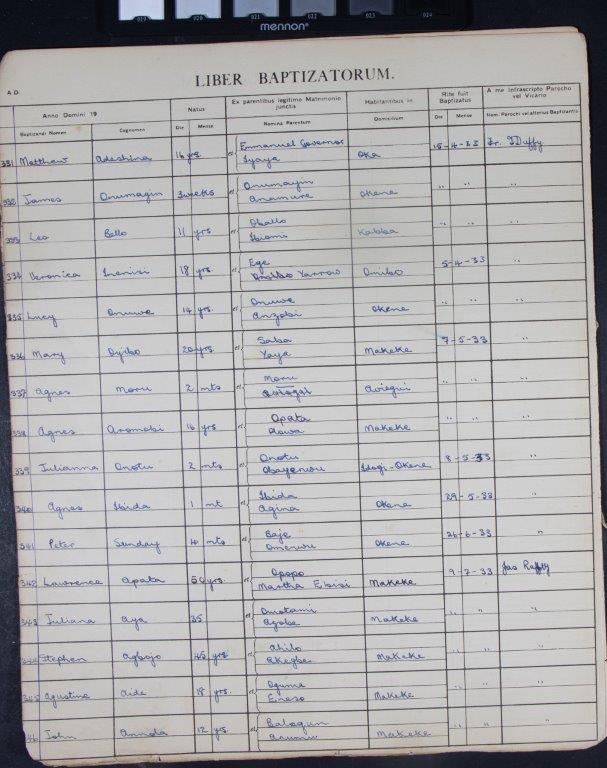 019 020 021 022 023 024
mennon
LIBER BAPTIZATORUM.
A D
Anno Domini 19 Natus Ex parentibus legitimo Matrimonio junctis Habitantibus in Rite fuit Baptizatus A me infrascripto Parocho vel Vicario
Baptizandi Nomen Cognomen Die Mense Nomina Parentum Domicilium Die Mense Nom. Parochi vel alterius Baptizantis
331 Matthew Adeshina 16 yrs et Emmanuel Governor Oka 15-4-33 Fr. Duffy
Iyaya
332 James Onumayin 3 weeks et Onumayin Okene " " "
Anamure
333 Leo Bello 11 yrs et Oballo Kabba " " "
Ibiomi
334 Veronica 18 yrs. et Ege Omibo 5-4-33 "
Omibo Yarrow
335 Lucy Onuwe 14 yrs. et Onuwe Okene " " "
Anzobi
336 Mary Ojibo 20 yrs. et Saba Makeke 7-5-33 "
Yaya
337 Agnes Moru 2 mts et Moru " " "
338 Agnes Aromobi 16 yrs et Apata Makeke " " "
339 Julianna Onotu 2 mts et Onotu Idogi-Okene 8-5-33 "
Obayenwu
340 Agnes Ibida 1 mt et Ibida Okene 29-5-33 "
Agina
341 Peter Sunday 4 mts et Baje Okene 26-6-33 "
Omeruwu
342 Lawrence Apata 50 yrs. et Opopo Makeke 9-7-33 Jas Raffty
Martha Ebisi
343 Juliana Aya 35 et Omotami Makeke " " "
Agoba
344 Stephen Agbojo 45 yrs et Ahilo Makeke " " "
Akegbe
345 Agustine Aide 18 yrs. et Oguma Makeke " " "
Eneso
346 John Annola 12 yrs et Balogun Makeke " " "